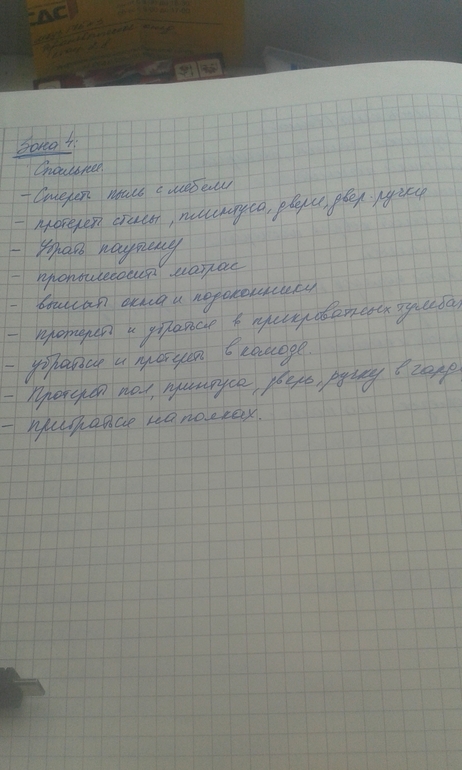 САС
Зона 4:
Спальня.
- Стереть пыль с мебели
- протереть стены, плинтуса, двери, двер. ручки
- Убрать паутину
- пропылесосить матрас
- вымыть окна и подоконники
- протереть и убраться в прикроватных тумбах
- убраться и протереть в комоде.
- Протереть пол, принтуса, дверь, ручку в гард
- прибраться на полках.